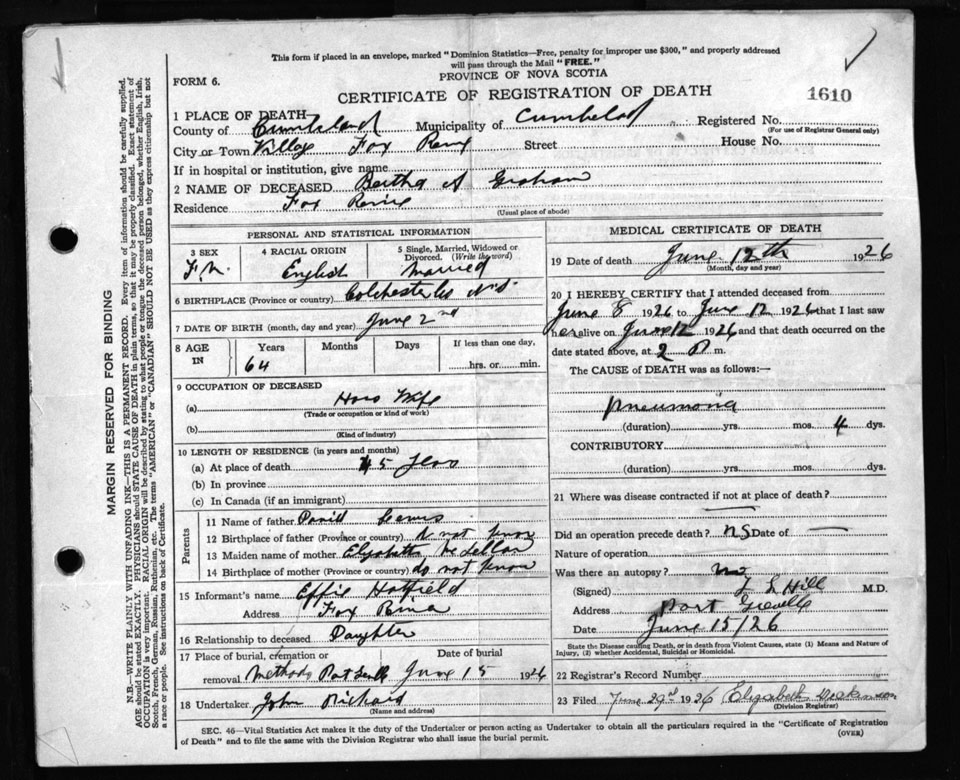 This form if placed in an envelope, marked "Dominion Statistics—Free, penalty for improper use $300," and properly addressed
will pass through the Mail "FREE."
FORM 6.
PROVINCE OF NOVA SCOTIA
CERTIFICATE OF REGISTRATION OF DEATH
1610
1 PLACE OF DEATH
County of Cumberland Municipality of Registered No.
(For use of Registrar General only)
City or Town Village Fox Street House No.
If in hospital or institution, give name
2 NAME OF DECEASED Bertha A Graham
Residence Fox
(Usual place of abode)
PERSONAL AND STATISTICAL INFORMATION
3 SEX
4 RACIAL ORIGIN English
5 Single, Married, Widowed or
Divorced. (Write the word)
Married
6 BIRTHPLACE (Province or country) Colchester Co N.S.
7 DATE OF BIRTH (month, day and year) June 2nd
8 AGE
IN
Years Months Days If less than one day,
64 hrs. or min.
9 OCCUPATION OF DECEASED
(a) Wife
(Trade or occupation or kind of work)
(b)
(Kind of industry)
10 LENGTH OF RESIDENCE (in years and months)
(a) At place of death 45
(b) In province
(c) In Canada (if an immigrant)
Parents
11 Name of father
12 Birthplace of father (Province or country) not know
13 Maiden name of mother Elizabeth
14 Birthplace of mother (Province or country) do not know
15 Informant's name Effie Hatfield
Address Fox
16 Relationship to deceased Daughter
17 Place of burial, cremation or
removal
Date of burial
June 15 1926
18 Undertaker John
(Name and address)
MEDICAL CERTIFICATE OF DEATH
19 Date of death June 12th 1926
(Month, day and year)
20 I HEREBY CERTIFY that I attended deceased from
June 8 1926 to June 12 1926 that I last saw
her alive on June 12 1926 and that death occurred on
the date stated above, at 2 P m.
The CAUSE of DEATH was as follows:—
Pneumonia
(duration) yrs. mos. 4 dys.
CONTRIBUTORY
(duration) yrs. mos. dys.
21 Where was disease contracted if not at place of death?
Did an operation precede death? Date of —
Nature of operation
Was there an autopsy? no
(Signed) L L Hill M.D.
Address Port Greville
Date June 15/26
State the Disease causing Death, or in death from Violent Causes, state (1) Means and Nature of
Injury, (2) whether Accidental, Suicidal or Homicidal.
22 Registrar's Record Number
23 Filed June 29 1926 Elizabeth
(Division Registrar)
SEC. 46—Vital Statistics Act makes it the duty of the Undertaker or person acting as Undertaker to obtain all the particulars required in the "Certificate of Registration
of Death" and to file the same with the Division Registrar who shall issue the burial permit.
(OVER)
MARGIN RESERVED FOR BINDING
N.B.—WRITE PLAINLY WITH UNFADING INK—THIS IS A PERMANENT RECORD. Every item of information should be carefully supplied.
AGE should be stated EXACTLY. PHYSICIANS should STATE CAUSE OF DEATH in plain terms, so that it may be properly classified. Exact statement of
OCCUPATION is very important. RACIAL ORIGIN will be described by stating to what people or tongue the deceased person belonged, whether English, Irish,
Scotch, French, German, Russian, Ruthenian, etc. The terms "AMERICAN" or "CANADIAN" SHOULD NOT BE USED as they express citizenship but not
a race or people. See instructions on back of Certificate.